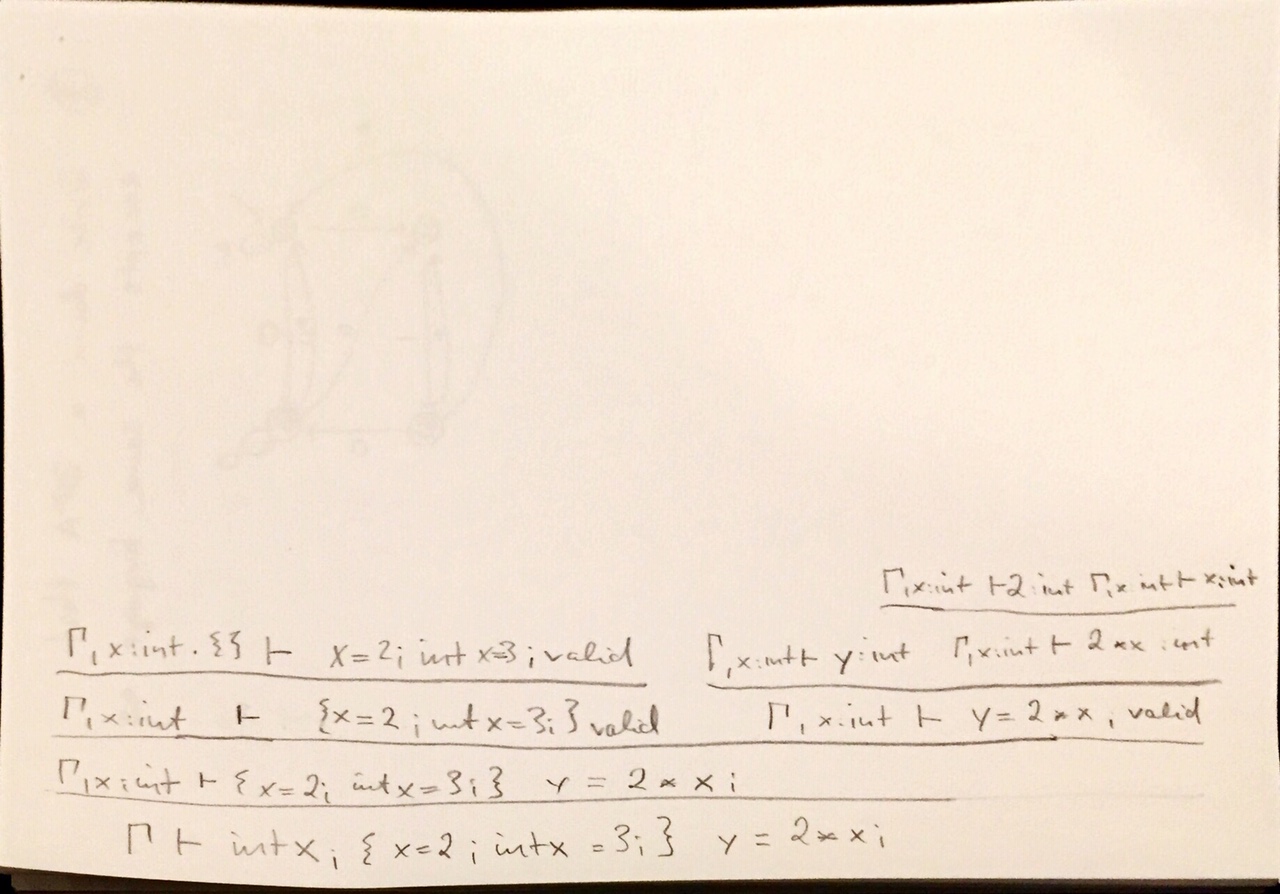 Γ,x:int ⊢ 2:int Γ,x:int ⊢ x:int
Γ,x:int.{} ⊢ x=2; int x=3; valid Γ,x:int ⊢ y:int Γ,x:int ⊢ 2*x : int
Γ,x:int ⊢ {x=2; int x=3;} valid Γ,x:int ⊢ y=2*x; valid
Γ,x:int ⊢ {x=2; int x=3;} y = 2*x;
Γ ⊢ int x; {x=2; int x=3;} y = 2*x;